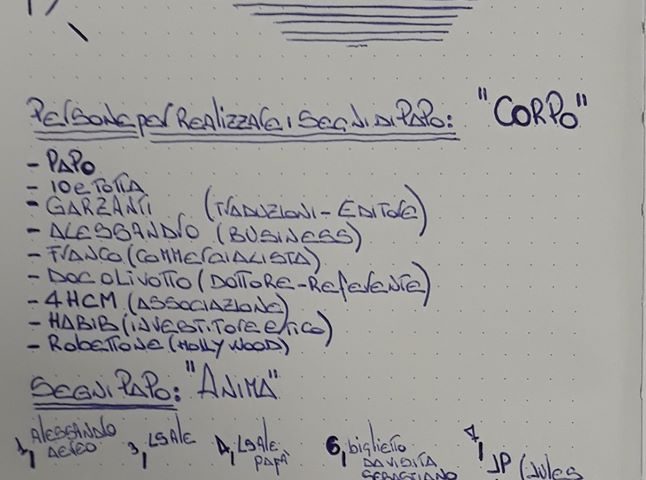 PERSONE per REALIZZARE i SEGNI DI PAPO: "CORPO"
- PAPO
- IO E TOTIA
- GARZANTI (TRADUZIONI - EDITORE)
- ALESSANDRO (BUSINESS)
- FRANCO (COMMERCIALISTA)
- DOC OLIVOTTO (DOTTORE - REFERENTE)
- 4HCM (ASSOCIAZIONE)
- HABIB (INVESTITORE ETICO)
- ROBERTONE (HOLLYWOOD)
SEGNI PAPO: "ANIMA"
ALESSANDRO
AEREO
3, LSALE
4, LSALE
PAPÀ
6, biglietto
DA VISITA
SEBASTIANO
JP (Jules